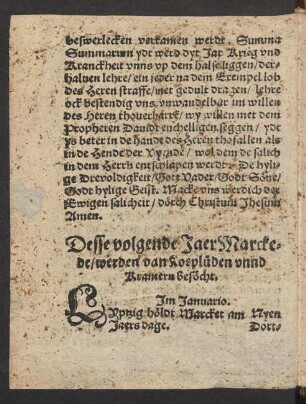 beswerlecken vorkamen werdt. Summa
Summarum ydt werd dyt Jar Krieg vnd
Kranckheit vnns vp dem halse liggen / der-
haluen lehre / ein jeder na dem Exempel Job
des Heren straffe / met gedult dragen / lehre
ock bestendig vns vnwandelbar im willen
des Heren
wy willen met dem
Propheten Dauidt
seggen / ydt
ys beter in de handt des Heren thofallen als
in de Hende der
wol dem de salich
in dem Herrn entschlapen werdt. De hyli-
ge Drevoldigkeit / Gott Vader / Godt Söne /
Godt hylige Geist. Macke vns werdich der
Ewigen salicheit / dorch Christum Jhesum
Amen.
Desse volgende Jaer Marcke-
de / werden van Koeplüden vnnd
Kramern besöcht.
Im Januario.
LYptzig höldt Marcket am Nyen
Jaers dage.
Dort-